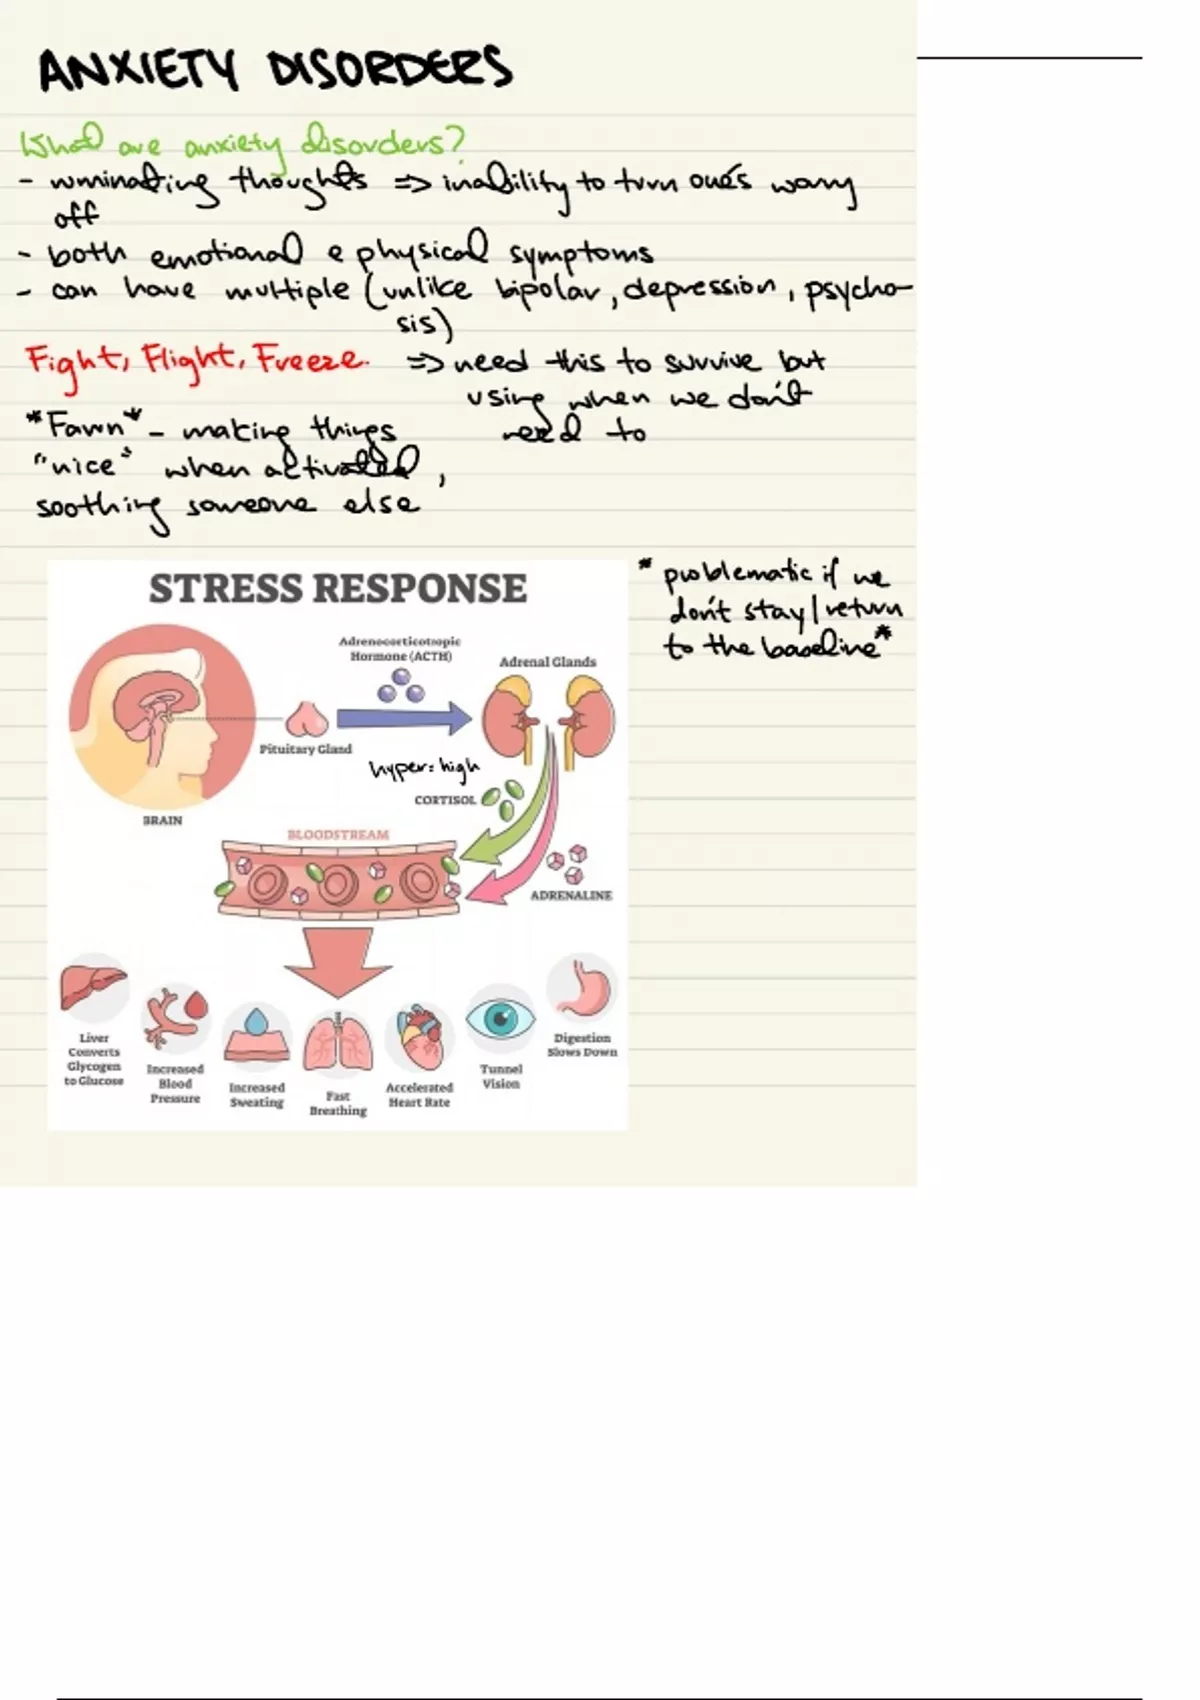 ANXIETY DISORDERS
What are anxiety disorders?
- ruminating thoughts => inability to turn one's worry
off
- both emotional e physical symptoms
- can have multiple (unlike bipolar, depression, psycho-
sis)
Fight, Flight, Freeze. => need this to survive but
using when we don't
need to
*Fawn* - making things
"nice" when activated,
soothing someone else
* problematic if we
don't stay/return
to the baseline*
STRESS RESPONSE
Adrenocorticotropic
Hormone (ACTH)
Adrenal Glands
Pituitary Gland
hyper = high
CORTISOL
BRAIN
BLOODSTREAM
ADRENALINE
Liver
Converts
Glycogen
to Glucose
Increased
Blood
Pressure
Increased
Sweating
Fast
Breathing
Accelerated
Heart Rate
Tunnel
Vision
Digestion
Slows Down